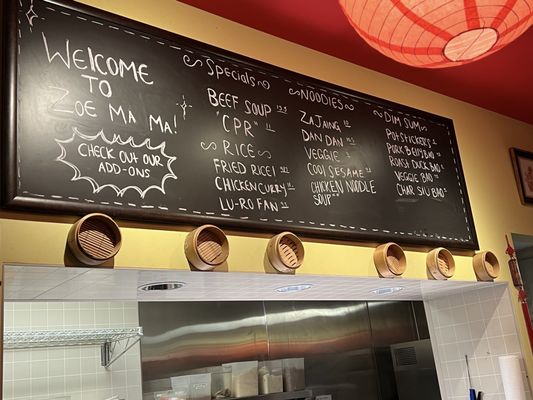 Welcome
to
Zoe Ma Ma!
Check out our
add-ons
Specials
Beef Soup
"CPR"
Rice
Fried Rice
Chicken Curry
Lu-Ro Fan
Noodles
Zajaing
Dan Dan
Veggie
Cool Sesame
Chicken Noodle
Soup
Dim Sum
Potstickers
Pork Beef Bao
Roast Duck Bao
Veggie Bao
Char Siu Bao